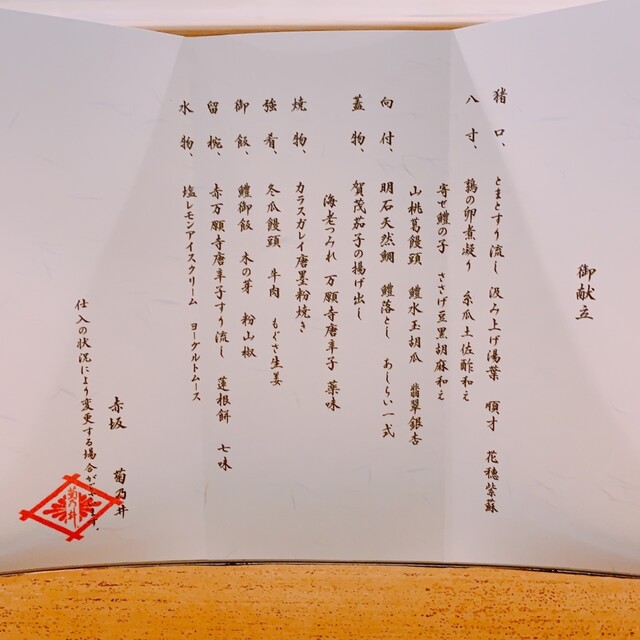 御献立
猪口、 とまとすり流し 汲み上げ湯葉 順才 花穂紫蘇
八寸、 鶉の卵煮凝り 糸瓜土佐酢和え
寄せ鱧の子 ささげ豆黒胡麻和え
山桃葛饅頭 鱧水玉胡瓜 翡翠銀杏
向付、 明石天然鯛 鱧落とし あしらい一式
蓋物、 賀茂茄子の揚げ出し
海老つみれ 万願寺唐辛子 薬味
焼物、 カラスガレイ唐墨粉焼き
強肴、 冬瓜饅頭 牛肉 もぐさ生姜
御飯、 鱧御飯 木の芽 粉山椒
留椀、 赤万願寺唐辛子すり流し 蓮根餅 七味
水物、 塩レモンアイスクリーム ヨーグルトムース
赤坂 菊乃井
仕入の状況により変更する場合がございます。
菊乃井